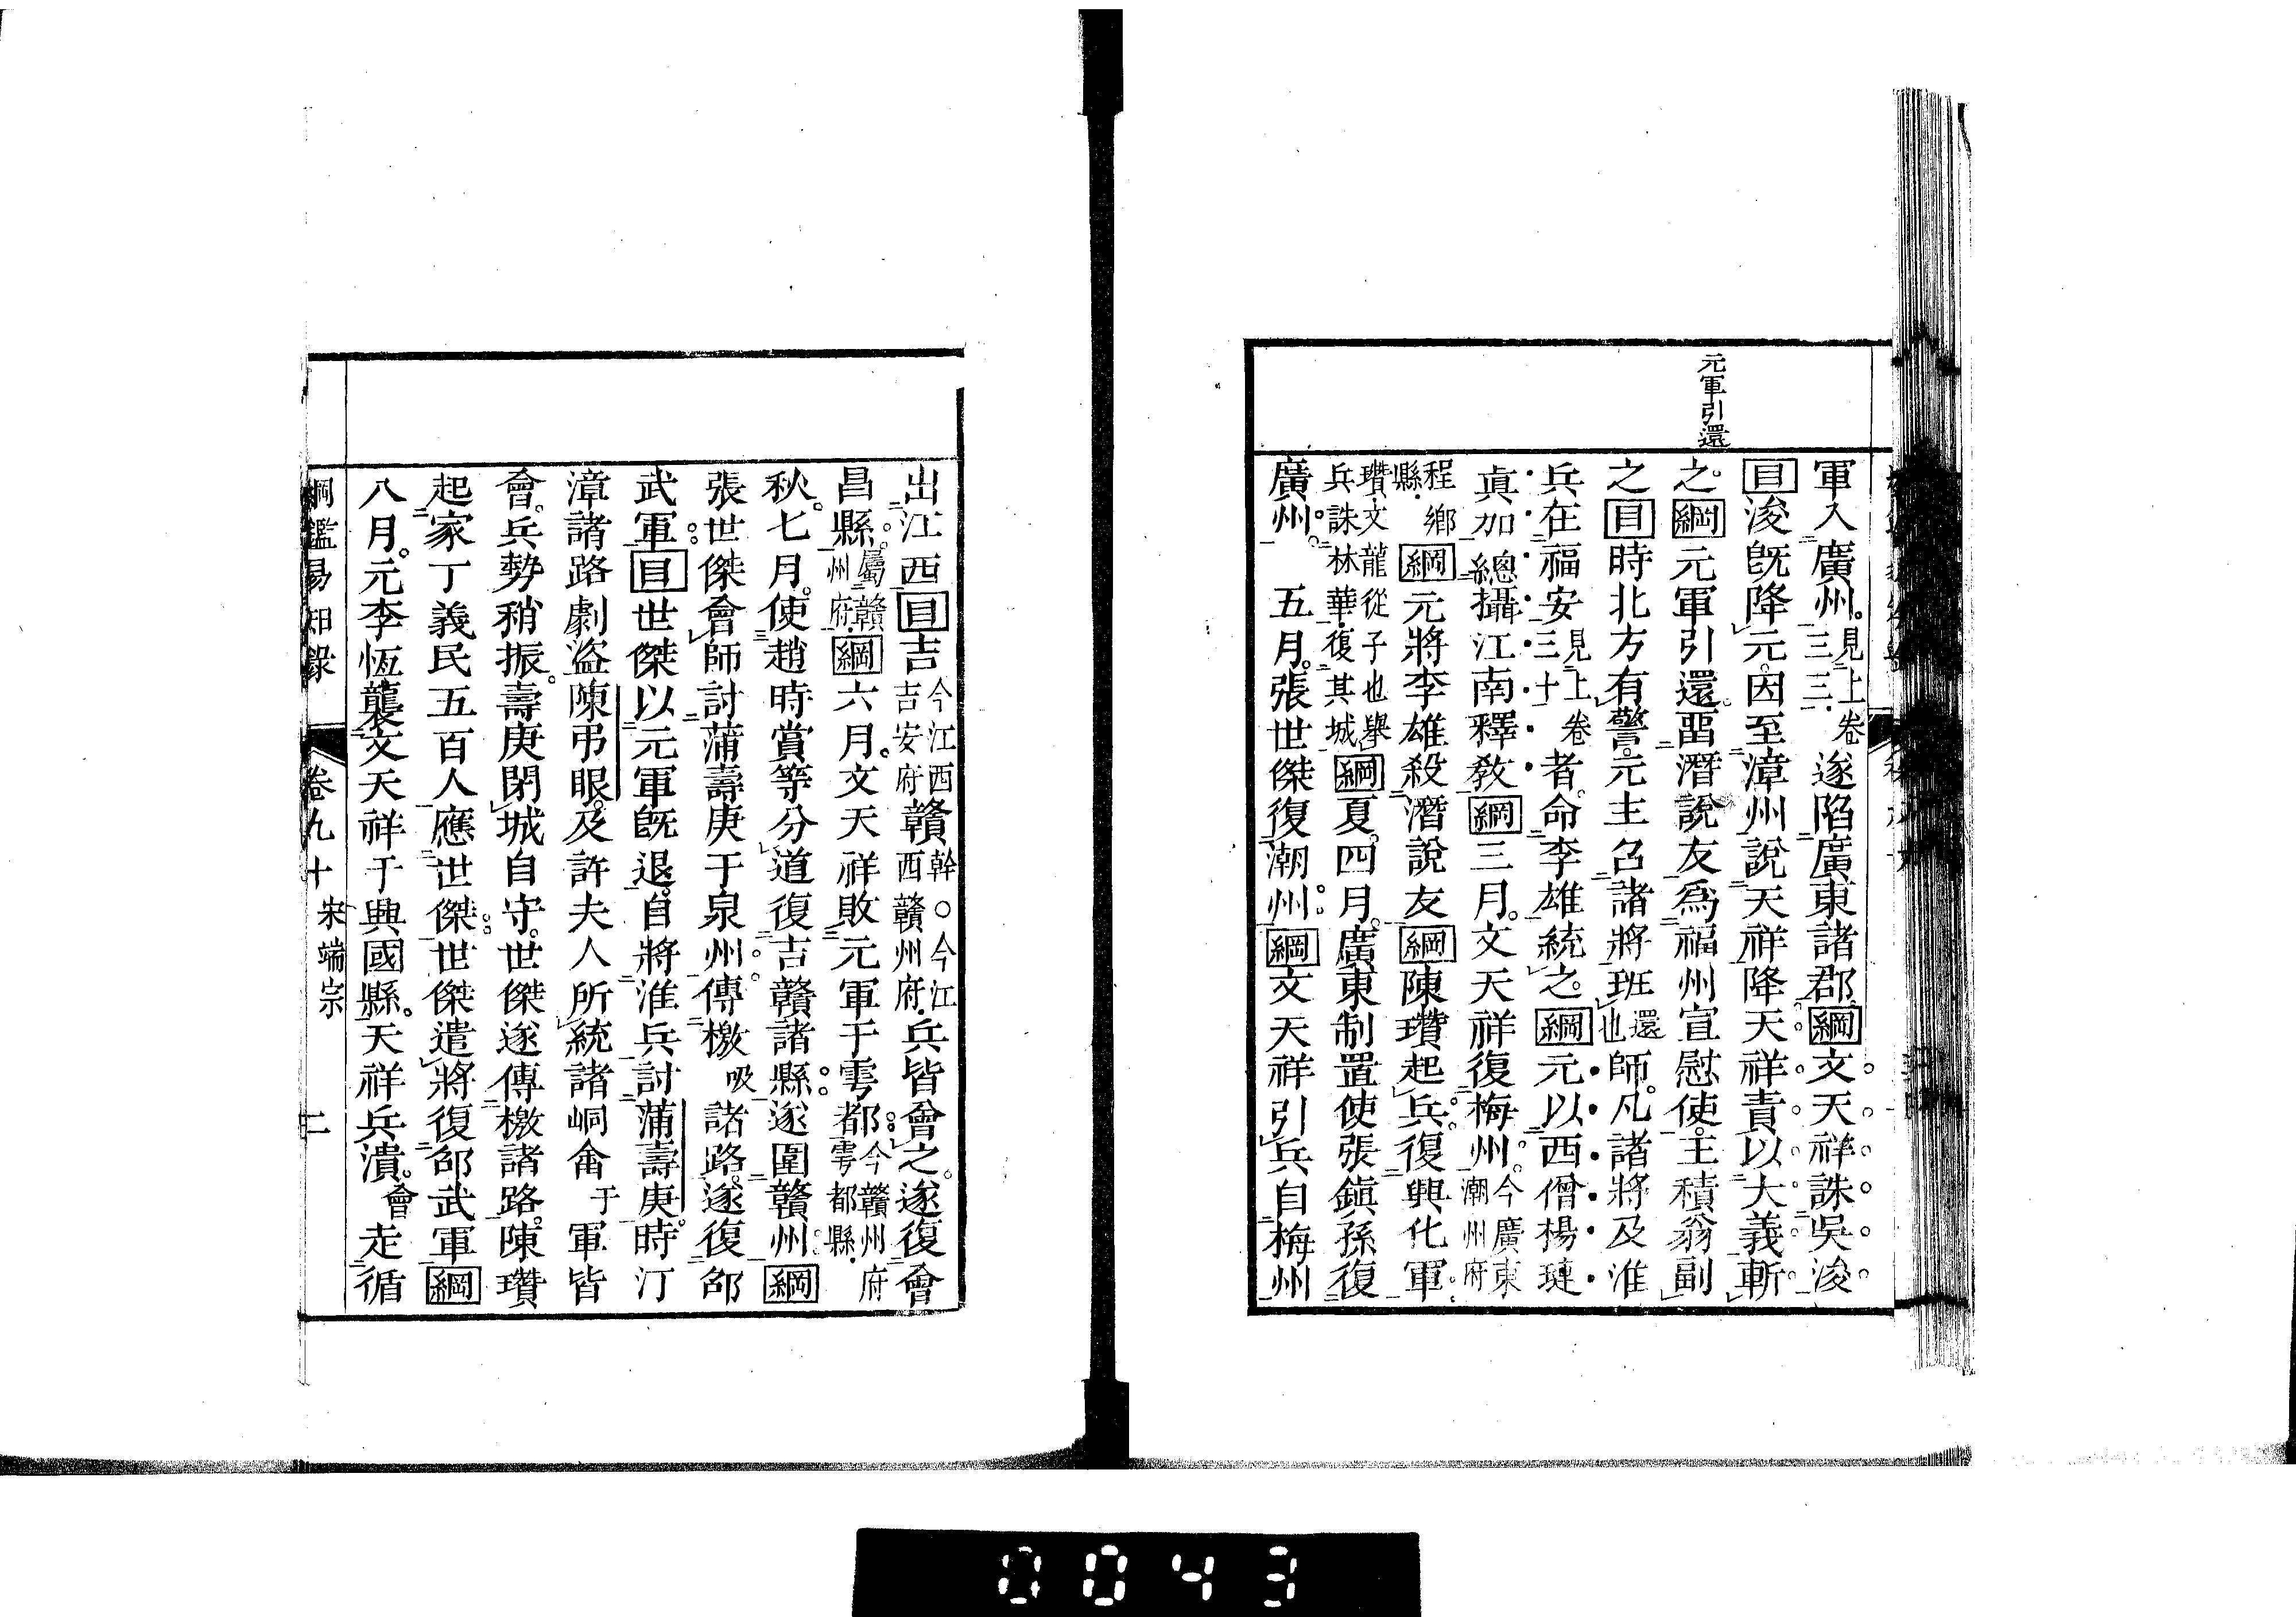 元軍引還
軍入廣州。見上卷三三遂陷廣東諸郡。綱文天祥誅吳浚
目浚既降元。因至漳州說天祥降。天祥責以大義斬
之。綱元軍引還。畱潛說友為福州宣慰使。王積翁副
之目時北方有警。元主召諸將班還也師。凡諸將及淮
兵在福安見上卷三十者。命李雄統之。綱元以西僧楊璉
真加總攝江南釋教綱三月。文天祥復梅州。今廣東潮州府
程鄉縣綱元將李雄殺潛說友綱陳瓚起兵。復興化軍。
瓚文龍從子也舉兵誅林華復其城綱夏。四月。廣東制置使張鎮孫復
廣州。　五月。張世傑復潮州。綱文天祥引兵自梅州
出江西目吉今江西吉安府贛幹○今江西贛州府兵皆會之。遂復會
昌縣。屬贛州府綱六月。文天祥敗元軍于雩都。今贛州府雩都縣
秋。七月。使趙時賞等分道復吉贛諸縣。遂圍贛州。綱
張世傑會師討蒲壽庚于泉州。傳檄吸諸路。遂復邵
武軍。目世傑以元軍既退。自將淮兵討蒲壽庚。時汀
漳諸路劇盗陳弔眼。及許夫人所統諸峒畲于軍皆
會。兵勢稍振。壽庚閉城自守。世傑遂傳檄諸路。陳瓚
起家丁義民五百人應世傑。世傑遣將復邵武軍綱
八月。元李恆襲文天祥于興國縣。天祥兵潰。會走循
綱鑑易知錄　卷九十　宋端宗　二
0043